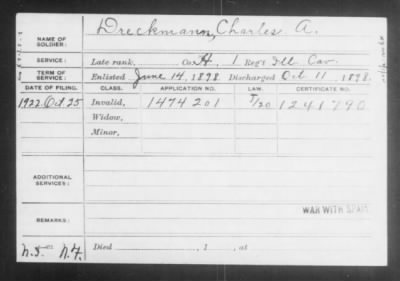 Dreckmann, Charles A.
NAME OF SOLDIER:
SERVICE: Late rank, Co. H, 1 Reg't Ill. Cav.
TERM OF SERVICE: Enlisted June 14, 1898. Discharged Oct 11, 1898.
DATE OF FILING. CLASS. APPLICATION NO. LAW. CERTIFICATE NO.
1922 Oct 25 Invalid, 1474201 1241790
Widow,
Minor,
ADDITIONAL SERVICES:
WAR WITH SPAIN
REMARKS:
Died , 1 , at